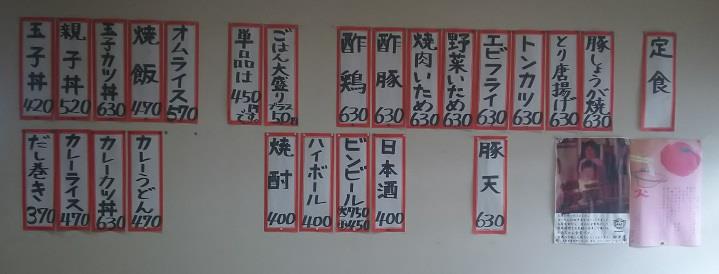 定食
豚しょうが焼 630
とり唐揚げ 630
トンカツ 630
エビフライ 630
野菜いため 630
焼肉いため 630
酢豚 630
酢鶏 630
ごはん大盛りプラス50円
単品は450円です。
オムライス 570
焼飯 470
玉子カツ丼 630
親子丼 520
玉子丼 420
豚天 630
日本酒 400
ビンビール 大750 小450
ハイボール 400
焼酎 400
カレーうどん 470
カレーカツ丼 630
カレーライス 470
だし巻き 370